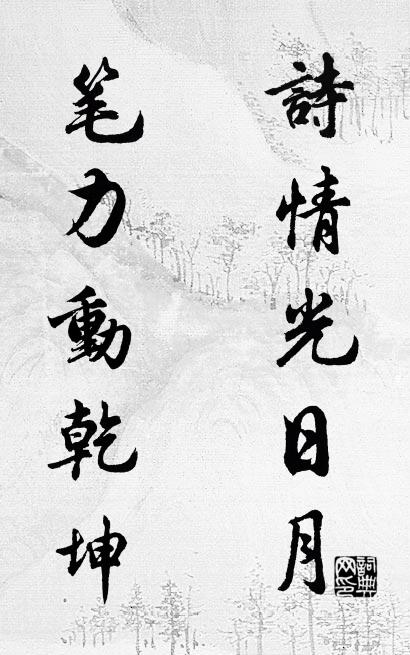 詩情光日月
笔力動乾坤
詞典網